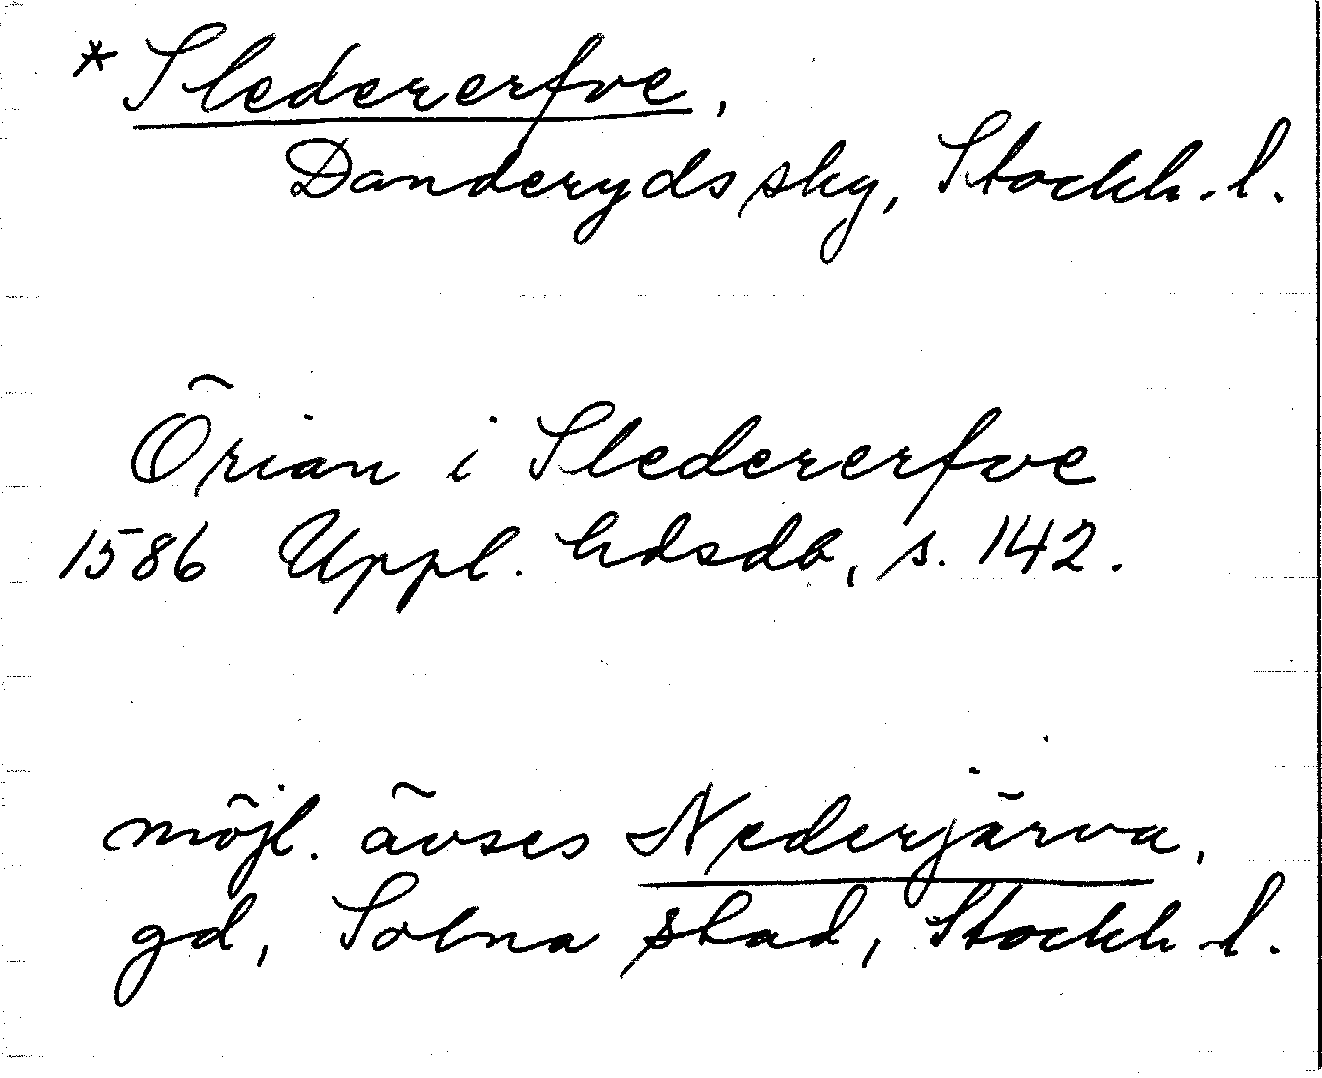 * Sledererfve,
Danderyds sky, Stockh. l.
Örian i Sledererfve
1586 Uppl. hdsdb, s. 142.
möjl. avses Nederjärva,
gd, Solna stad, Stockh. l.